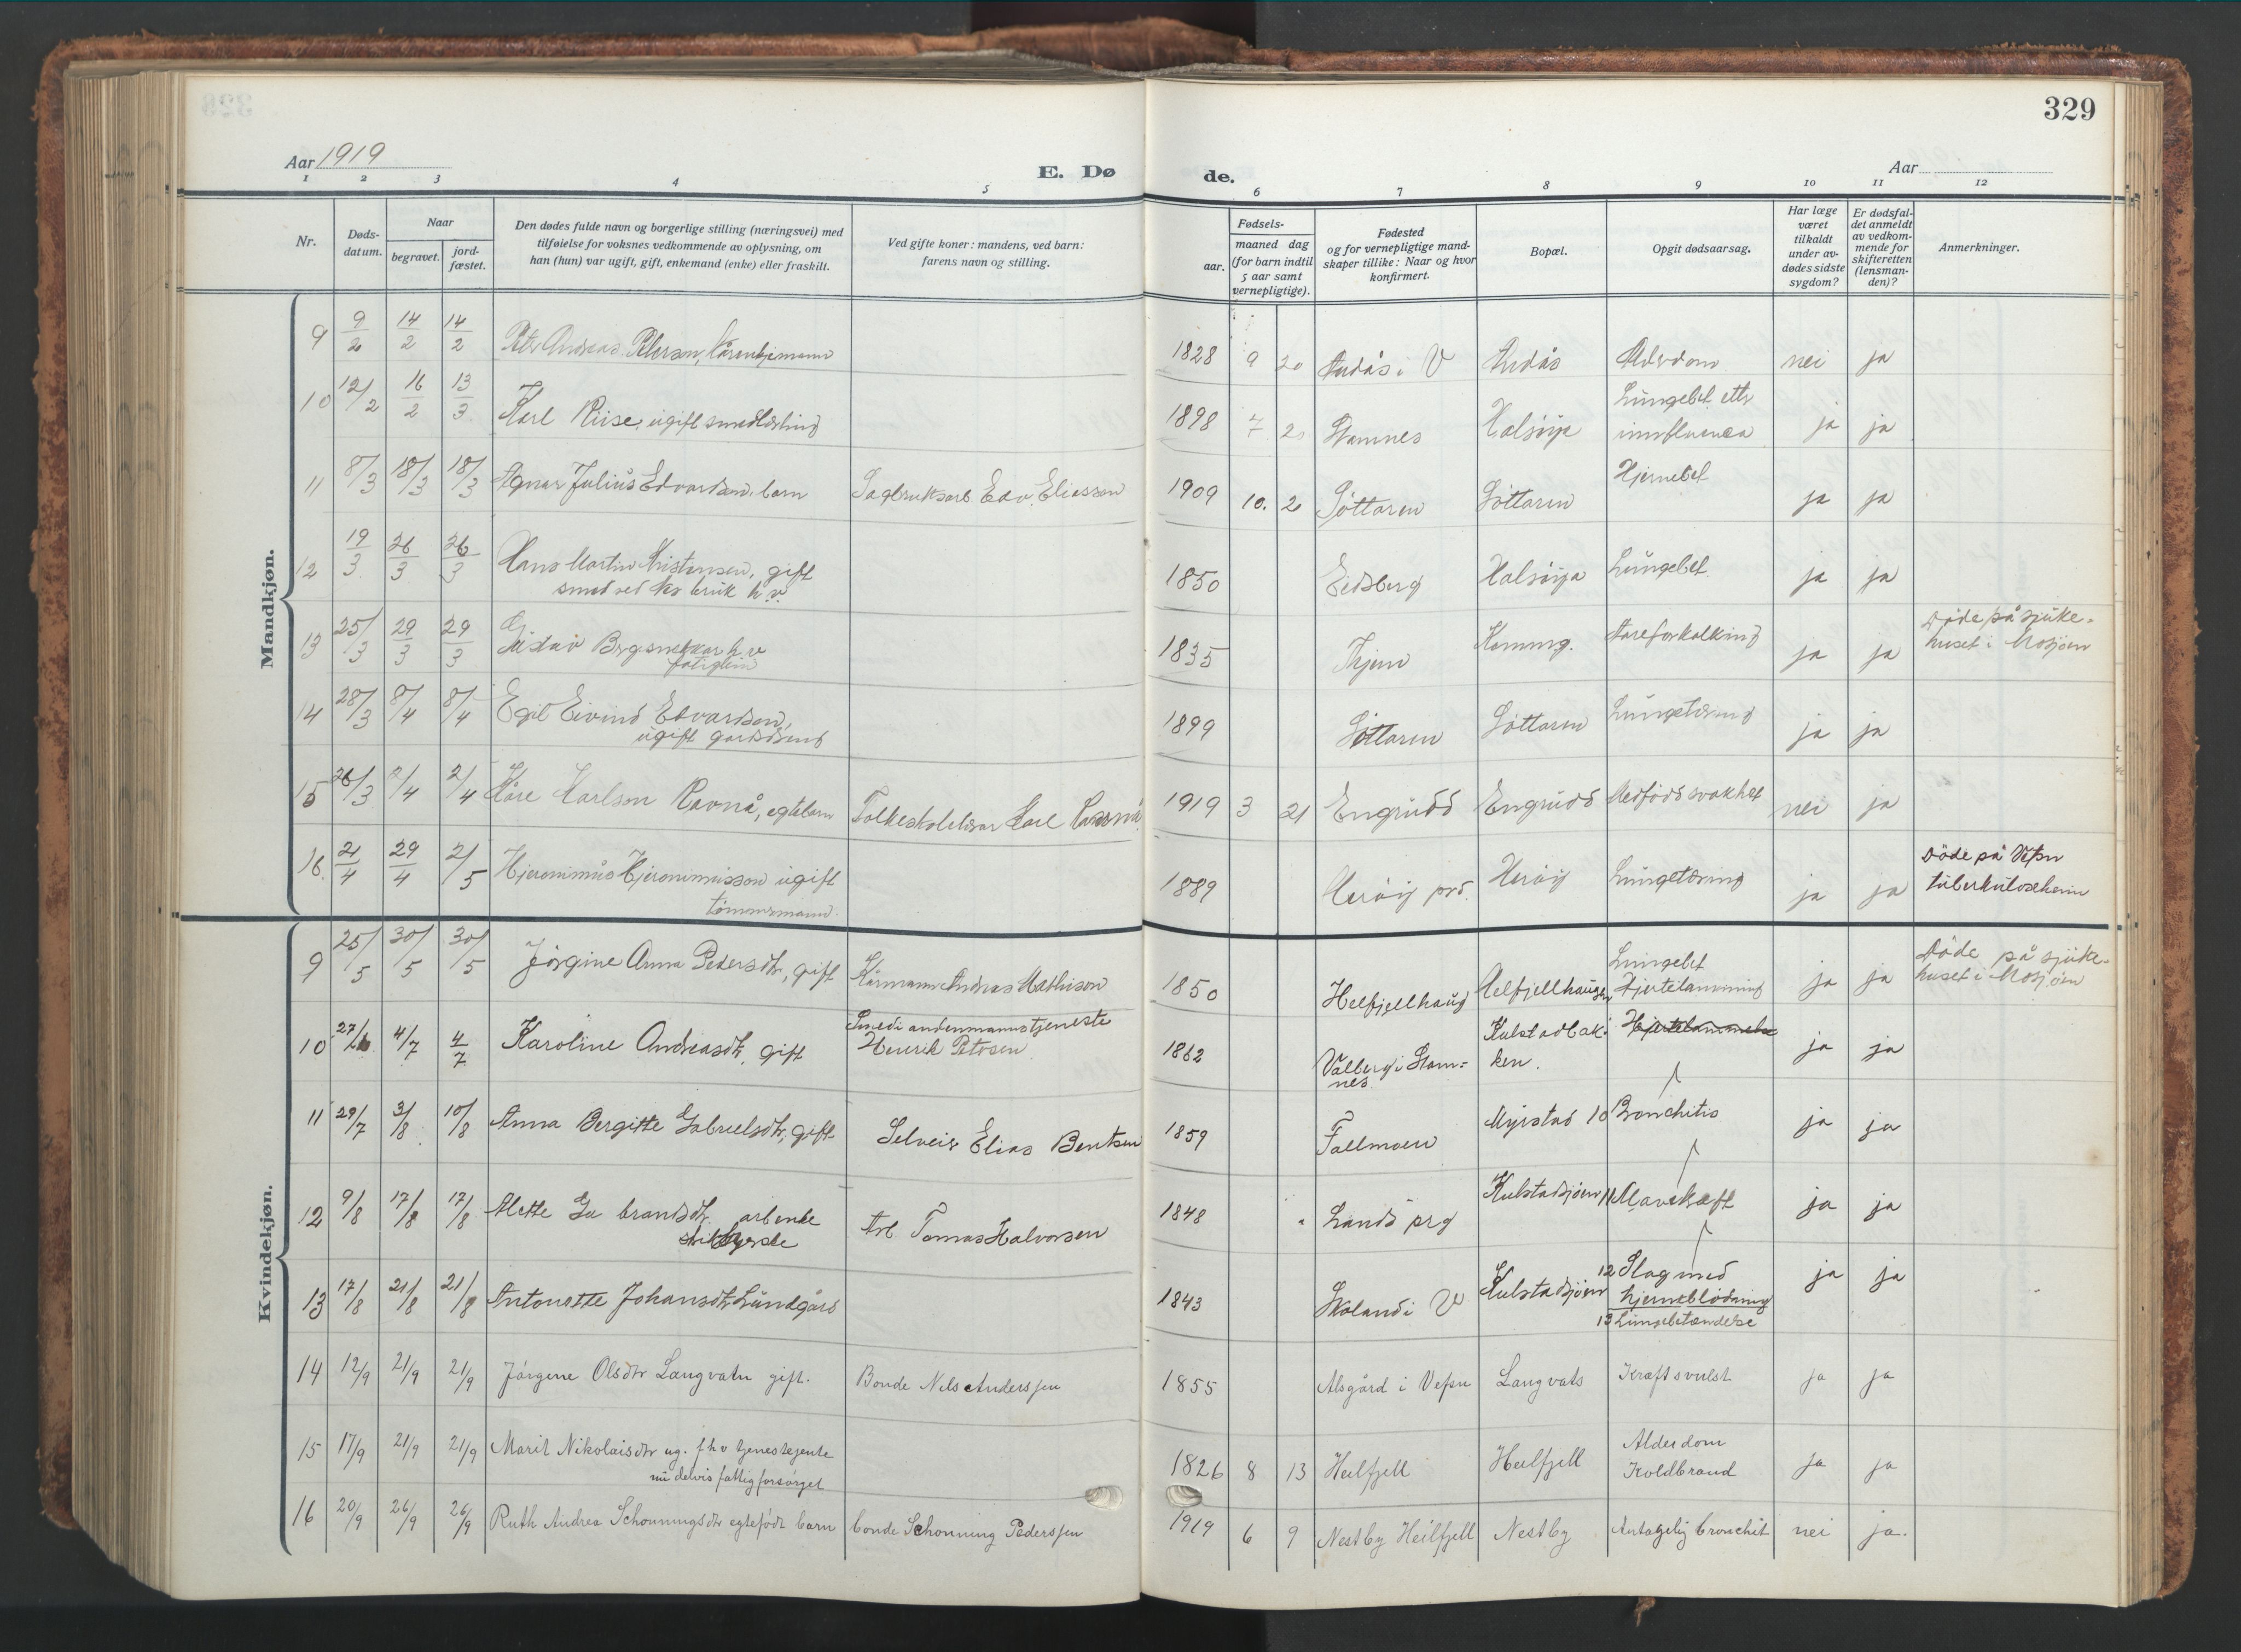 329
Aar 1919
E. Dø
de.
Aar
1 2 3 4 5 6 7 8 9 10 11 12
Nr.
Døds-
datum.
Naar
begravet.
jord-
fæstet.
Den dødes fulde navn og borgerlige stilling (næringsvei) med
tilføielse for voksnes vedkommende av oplysning, om
han (hun) var ugift, gift, enkemand (enke) eller fraskilt.
Ved gifte koner: mandens, ved barn:
farens navn og stilling.
Fødsels-
aar.
maaned dag
(for barn indtil
5 aar samt
vernepligtige).
Fødested
og for vernepligtige mand-
skaper tillike: Naar og hvor
konfirmert.
Bopæl.
Opgit dødsaarsag.
Har læge
været
tilkaldt
under av-
dødes sidste
sygdom?
Er dødsfal-
det anmeldt
av vedkom-
mende for
skifteretten
(lensman-
den)?
Anmerkninger.
Mandkjøn.
9 9/2 14/2 14/2 Andreas Peterson, 1828 9 20 i V Alderdom nei ja
10 12/2 16/2 13/3 Karl Riise, ugift smedlærling 1898 7 20 Stamnes Halsøya Lungebet. ettr
innfluenza ja ja
11 8/3 18/3 18/3 Agnar Julius Edvardsen, barn Sagbruksarb. Edv. Eliasson 1909 10. 2 Søttaren Søttaren Hjernebet ja ja
12 19/3 26/3 26/3 Hans Martin Kristensen, gift
smed ved bruk h.v. 1850 Eidsberg Halsøya Lungebet. ja ja
13 25/3 29/3 29/3 Gustav h v
fatiglem 1835 Komung. Aareforkalkning ja ja Døde på sjuke-
huset i Mosjøen
14 28/3 8/4 8/4 Egil Eivind Edvardsen,
ugift gardsdreng 1899 Søttaren Søttaren Lungetæring ja ja
15 26/3 2/4 2/4 Kåre Karlsen Ravnå, egtebarn Folkeskolelærar Karl Ravnå 1919 3 21 Engrudd Engrudd Medfødd svakhet nei ja
16. 21/4 29/4 2/5 Hjeronimus Hjeronimusson ugift
tømmermand 1889 Herøy prd. Herøy Lungetæring ja ja Døde på Vefsn
tuberkuloseheim
Kvindekjøn.
9 25/5 30/5 30/5 Jørgine Anna Pedersdtr, gift Kårmann Andreas Mathison 1850 Helfjellhaug Helfjellhaugen Lungebet
Hjertelammning ja ja Døde på sjuke-
huset i Mosjøen
10 27/6 4/7 4/7 Karoline Andreasdtr, gift Smed i andenmannstjeneste
Henrik Petersen 1862 Valberg i Stam-
nes. Kulstadbak-
ken. Hjertelammelse ja ja
11 29/7 3/8 10/8 Anna Bergitte Gabrielsdtr, gift Selveir Elias Bentsen 1859 Fallmoen Myrstad 10 Bronchitis ja ja
12 9/8 17/8 17/8 Mette brandsdtr. arb enke Arb. Tomas Halvorsen 1848 Lands prg Kulstadsjøen 11 Mavekræft ja ja
13 17/8 21/8 21/8 Antonette Johansdtr Lundgård 1843 i V Kulstadsjøen 12 Slag med
hjerneblødning
13 Lungebetændelse ja ja
14 12/9 21/9 21/9 Jørgine Olsdtr Langvatn gift. Bonde Nils Anderssen 1855 Alsgård i Vefsn Langvatn Kræftsvulst ja ja
15 17/9 21/9 21/9 Marit Nikolaisdtr ug. fhv tjenestejente
nu delvis fattigforsørget 1826 8 13 Heilfjell Heilfjell Alderdom
Koldbrand ja ja
16 20/9 26/9 26/9 Ruth Andrea Schonningsdtr egtefødt barn bonde Schonning Pederssen 1919 6 9 Nestby Heilfjell Nestby Antagelig bronchit nei ja.